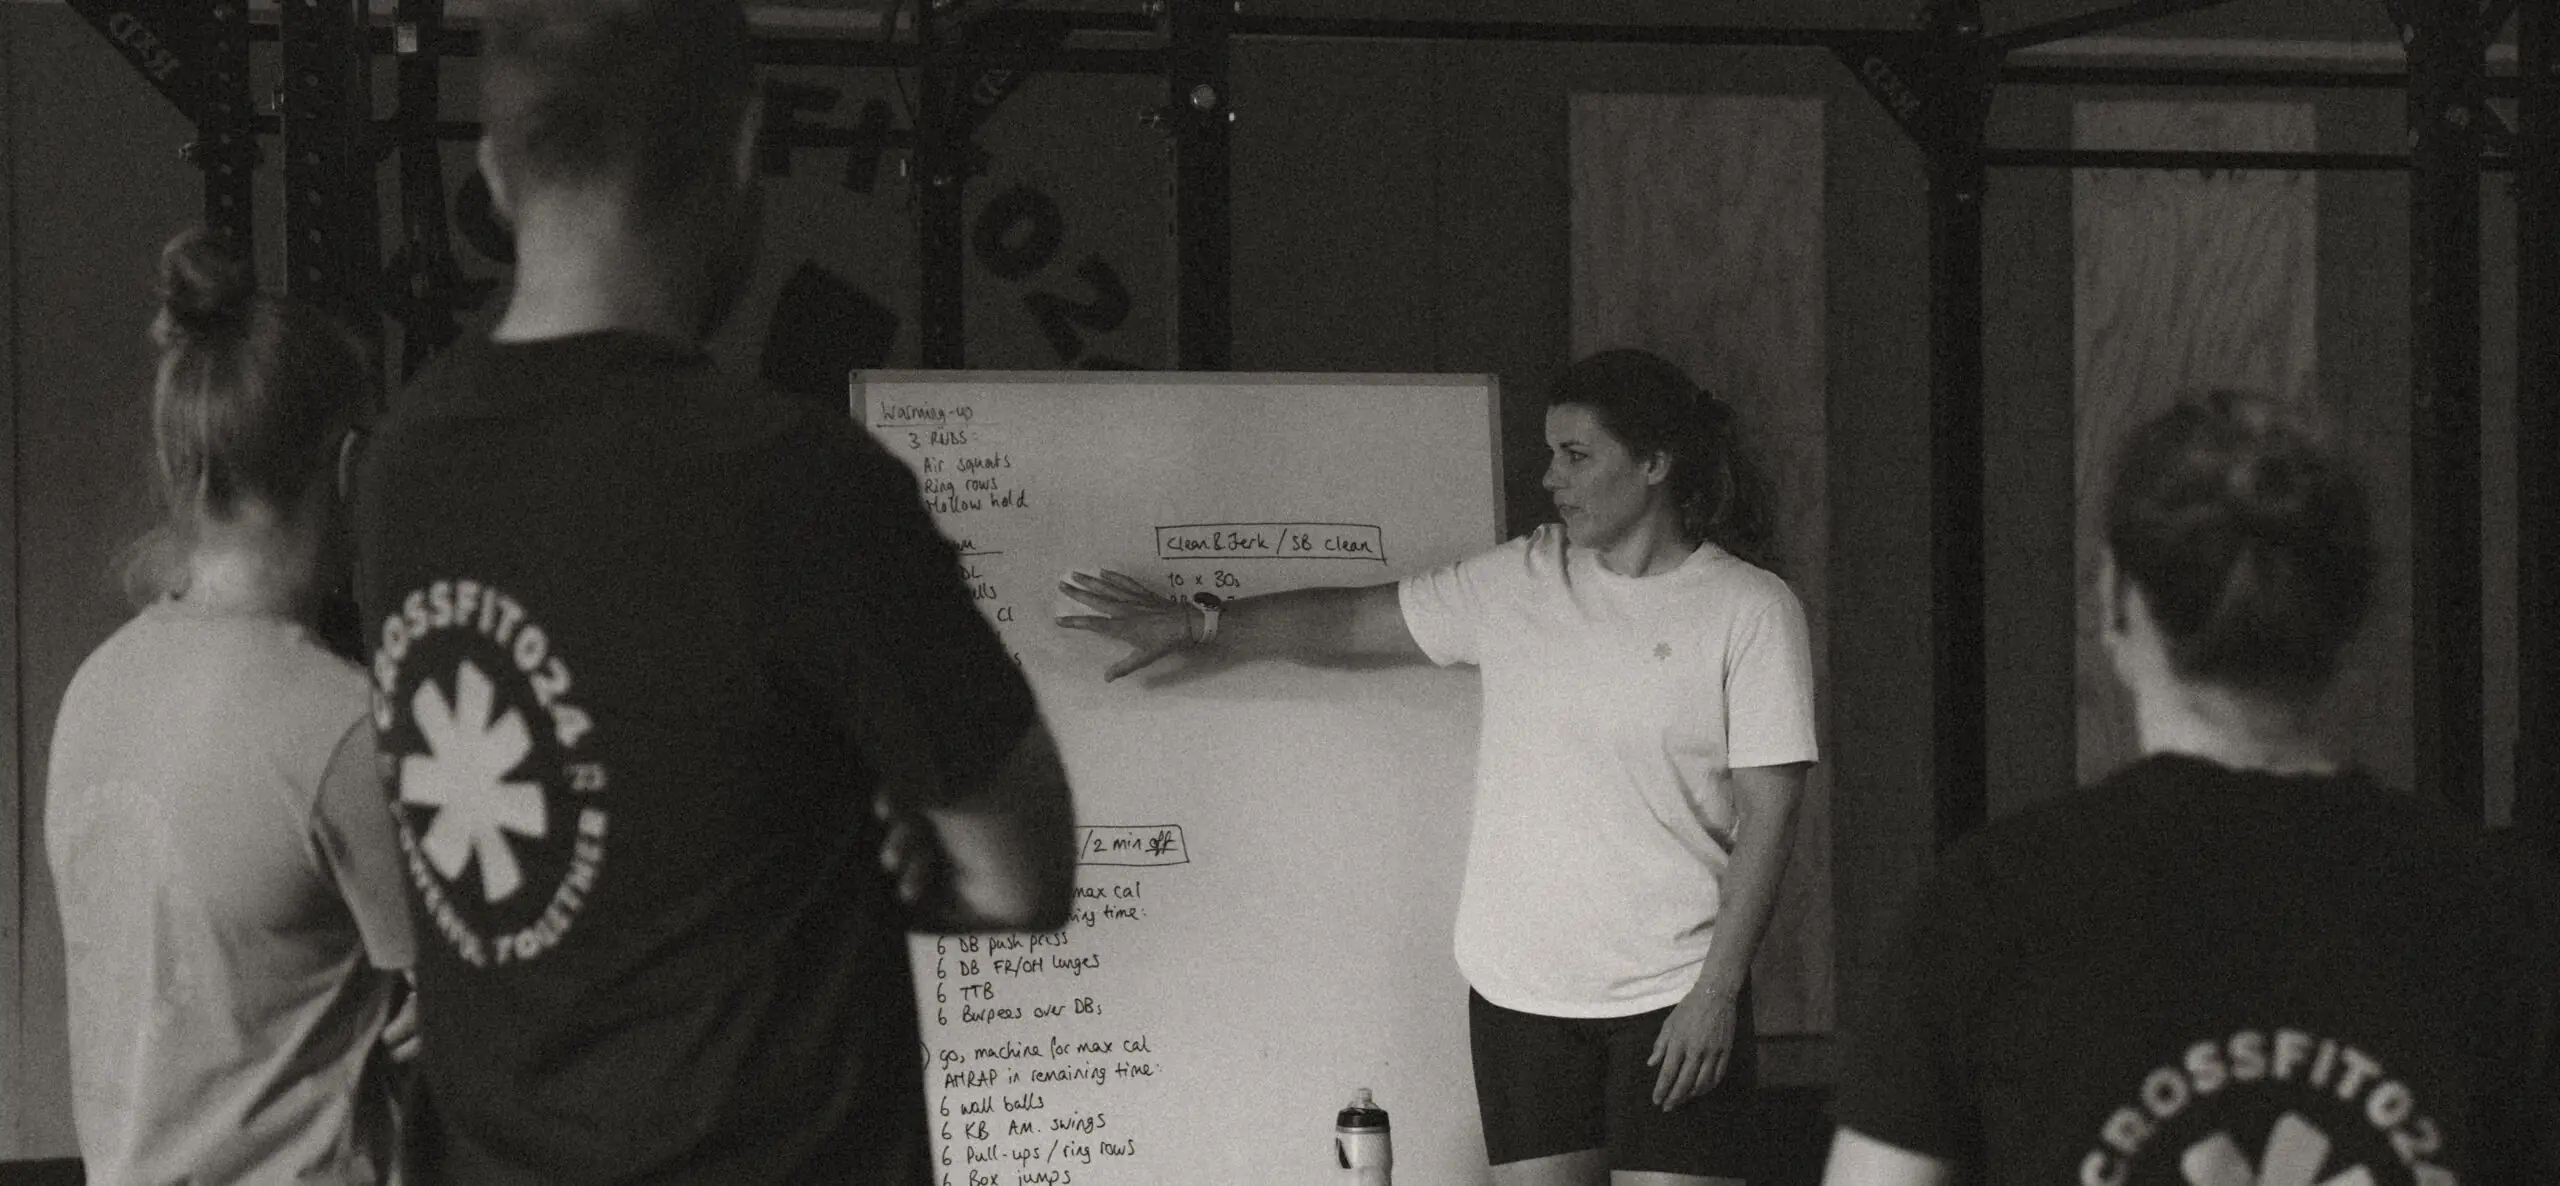 Warming-up
3 RNDS:
Air squats
Ring rows
Hollow hold
DL
Cl
Clean & Jerk / SB clean
10 x 30s
/2 min off
max cal
time:
6 DB push press
6 DB FR/OH lunges
6 TTB
6 Burpees over DBs
go, machine for max cal
AMRAP in remaining time:
6 wall balls
6 KB AM. swings
6 Pull-ups / ring rows
6 Box jumps
CROSSFIT024
TOGETHER
CROSSFIT024
FIT
02